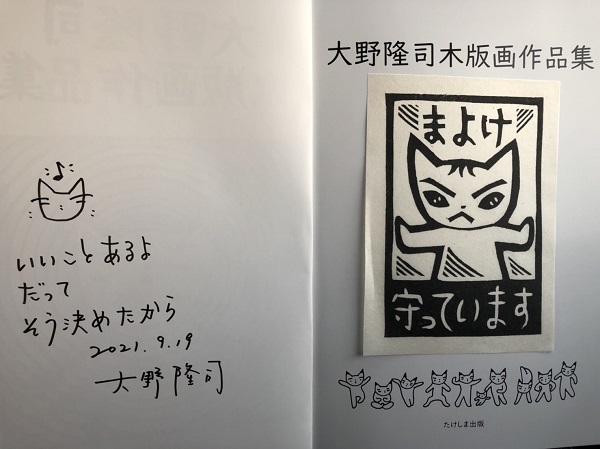 ♪
いいことあるよ
だって
そう決めたから
2021.9.19
大野隆司
大野隆司木版画作品集
まよけ
守っています
たけしま出版